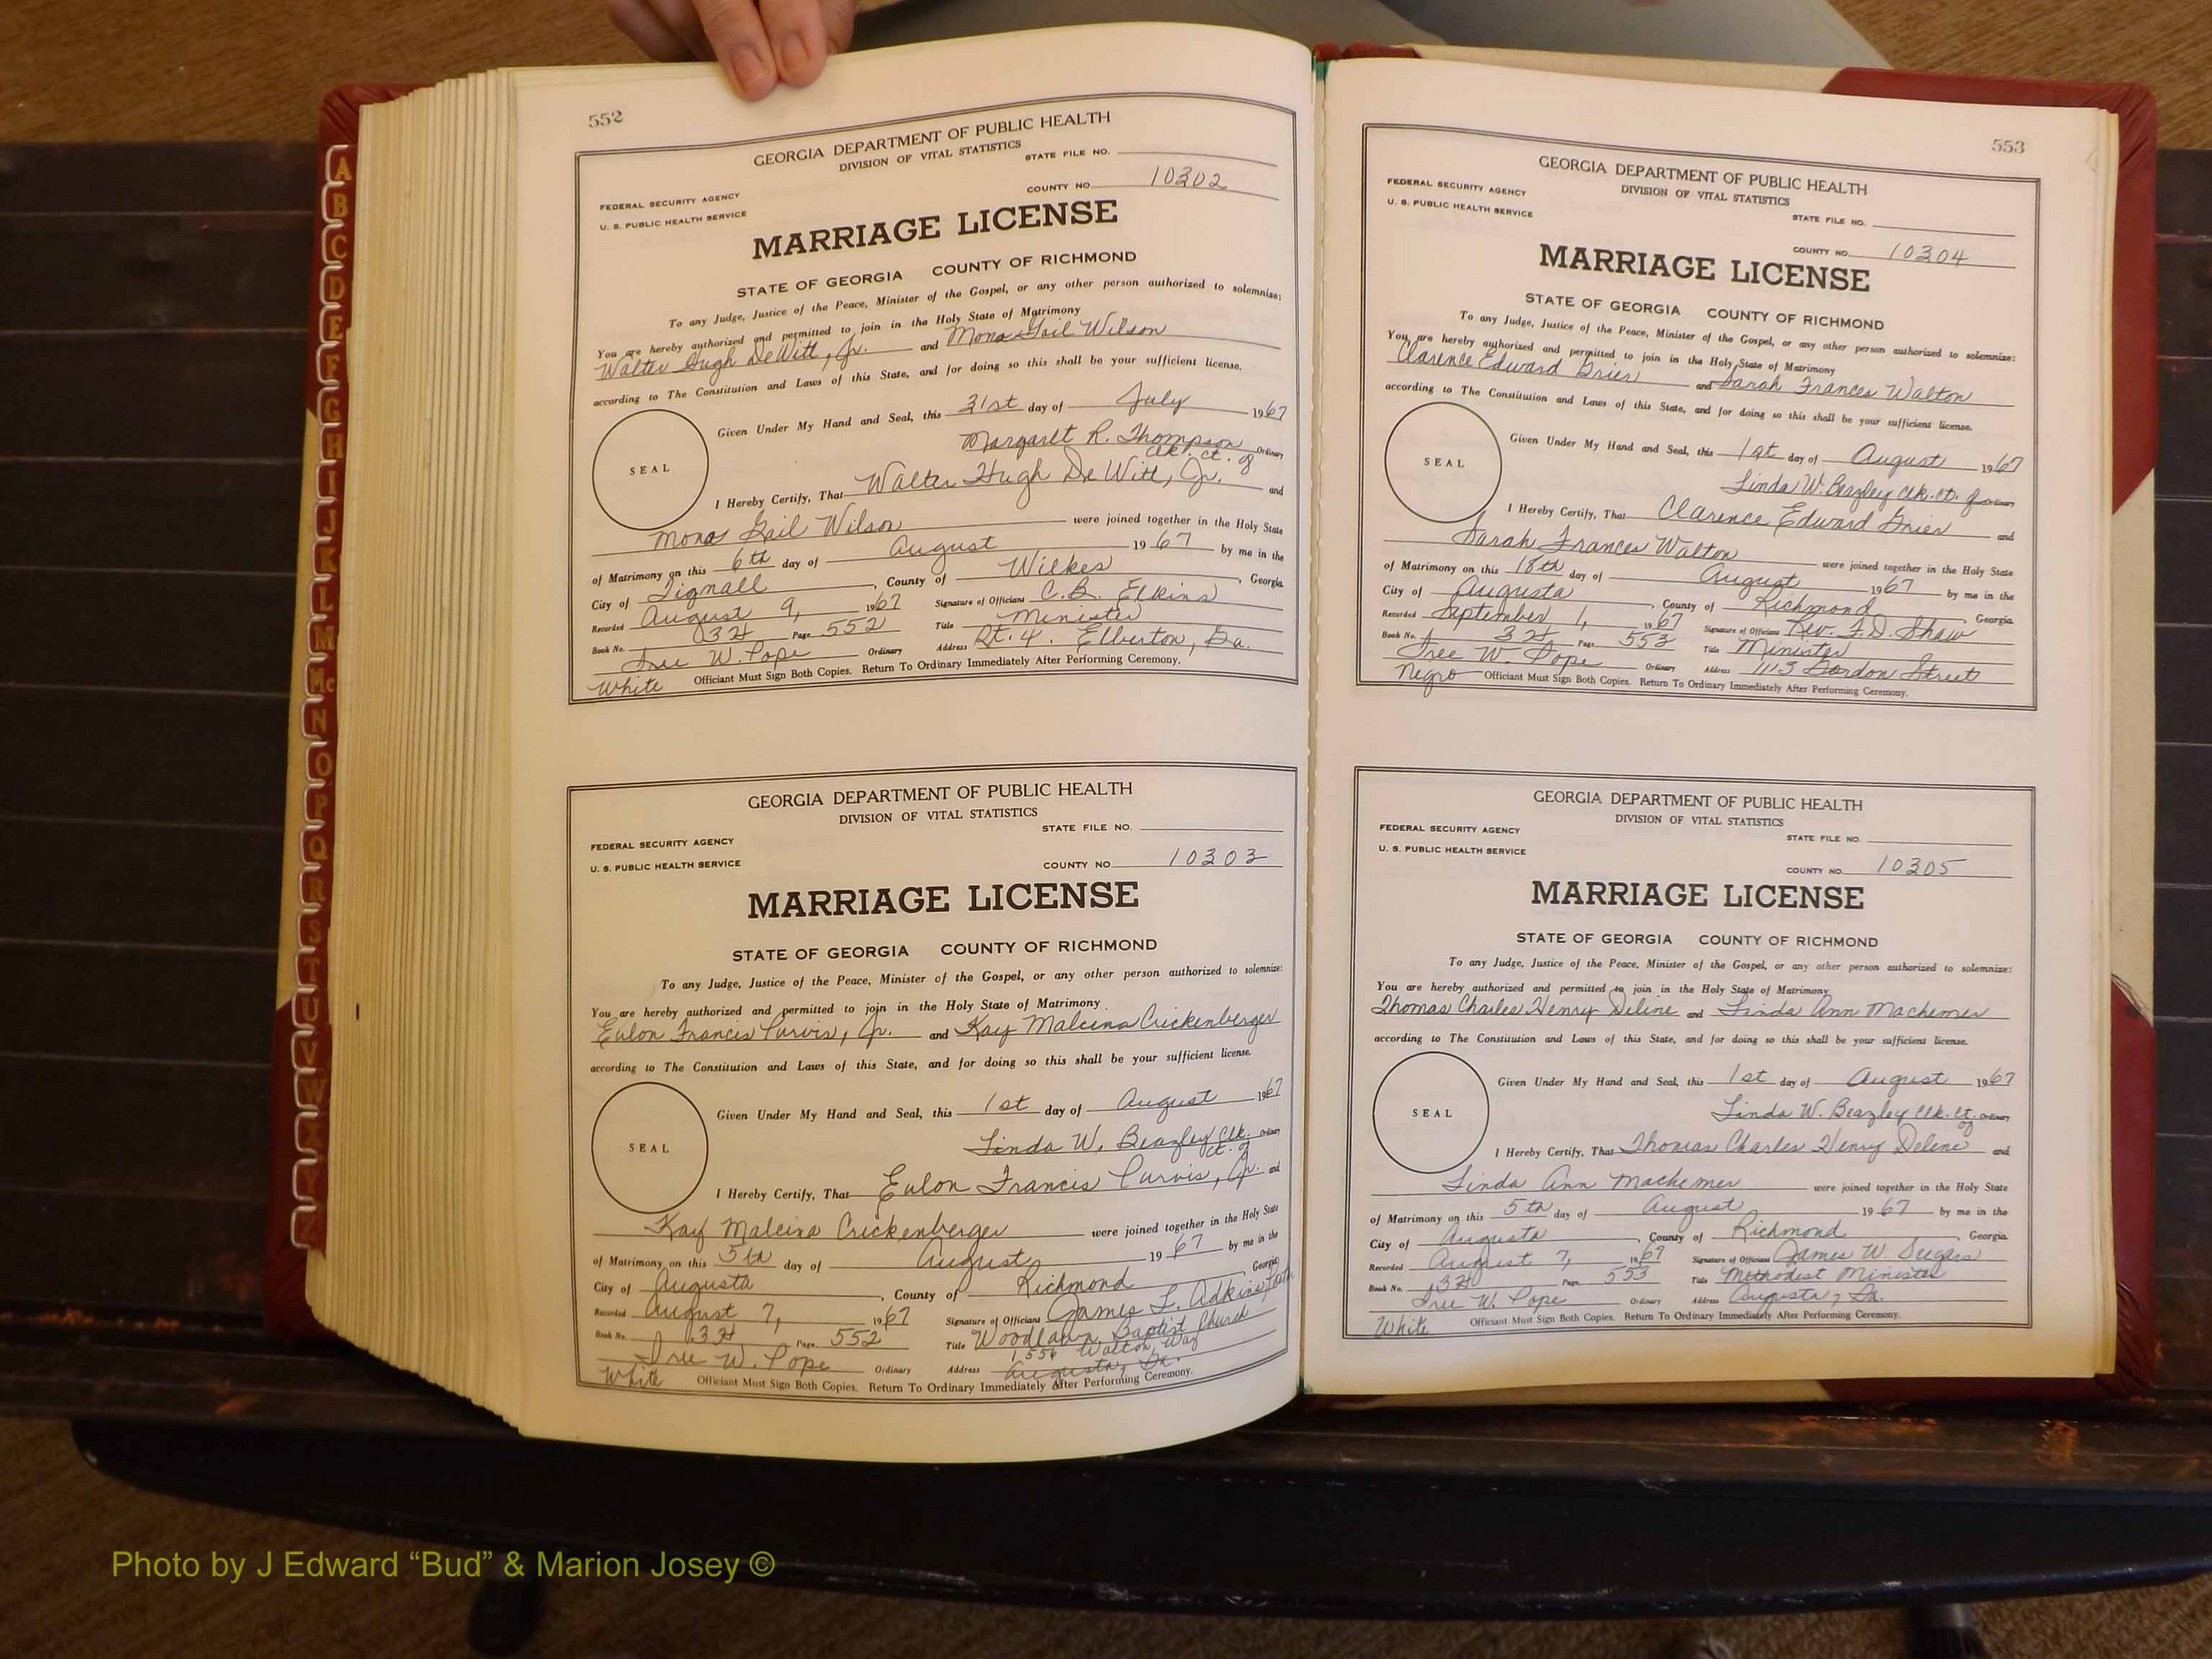 552
GEORGIA DEPARTMENT OF PUBLIC HEALTH
DIVISION OF VITAL STATISTICS
STATE FILE NO.
FEDERAL SECURITY AGENCY
U. S. PUBLIC HEALTH SERVICE
COUNTY NO. 10302
MARRIAGE LICENSE
STATE OF GEORGIA COUNTY OF RICHMOND
To any Judge, Justice of the Peace, Minister of the Gospel, or any other person authorized to solemnize:
You are hereby authorized and permitted to join in the Holy State of Matrimony
Walter Hugh DeWitt, Jr. and Mona Gail Wilson
according to The Constitution and Laws of this State, and for doing so this shall be your sufficient license.
Given Under My Hand and Seal, this 31st day of July 1967
Margaret R. Thompson
Clk. Ct. of Ordinary
SEAL
I Hereby Certify, That Walter Hugh DeWitt, Jr. and
Mona Gail Wilson were joined together in the Holy State
of Matrimony on this 6th day of August 1967 by me in the
City of Tignall, County of Wilkes, Georgia.
Recorded August 9, 1967 Signature of Officiant C.B. Elkins
Book No. 3H Page 552 Title Minister
Iree W. Pope Ordinary Address Rt. 4. Elberton, Ga.
White Officiant Must Sign Both Copies. Return To Ordinary Immediately After Performing Ceremony.
GEORGIA DEPARTMENT OF PUBLIC HEALTH
DIVISION OF VITAL STATISTICS
STATE FILE NO.
FEDERAL SECURITY AGENCY
U. S. PUBLIC HEALTH SERVICE
COUNTY NO. 10303
MARRIAGE LICENSE
STATE OF GEORGIA COUNTY OF RICHMOND
To any Judge, Justice of the Peace, Minister of the Gospel, or any other person authorized to solemnize:
You are hereby authorized and permitted to join in the Holy State of Matrimony
Eulon Francis Purvis, Jr. and Kay Malcina Crickenberger
according to The Constitution and Laws of this State, and for doing so this shall be your sufficient license.
Given Under My Hand and Seal, this 1st day of August 1967
Linda W. Beazley Clk. Ct. of Ordinary
SEAL
I Hereby Certify, That Eulon Francis Purvis, Jr. and
Kay Malcina Crickenberger were joined together in the Holy State
of Matrimony on this 5th day of August 1967 by me in the
City of Augusta, County of Richmond Georgia
Recorded August 7, 1967 Signature of Officiant James L. Adkins
Book No. 3H Page 552 Title Woodlawn Baptist Church
1556 Walton Way
Iree W. Pope Ordinary Address Augusta, Ga.
White Officiant Must Sign Both Copies. Return To Ordinary Immediately After Performing Ceremony.
553
GEORGIA DEPARTMENT OF PUBLIC HEALTH
DIVISION OF VITAL STATISTICS
FEDERAL SECURITY AGENCY
U. S. PUBLIC HEALTH SERVICE
STATE FILE NO.
COUNTY NO. 10304
MARRIAGE LICENSE
STATE OF GEORGIA COUNTY OF RICHMOND
To any Judge, Justice of the Peace, Minister of the Gospel, or any other person authorized to solemnize:
You are hereby authorized and permitted to join in the Holy State of Matrimony
Clarence Edward Grier and Sarah Frances Walton
according to The Constitution and Laws of this State, and for doing so this shall be your sufficient license.
Given Under My Hand and Seal, this 1st day of August 1967
Linda W. Beazley Clk. Ct. of Ordinary
SEAL
I Hereby Certify, That Clarence Edward Grier and
Sarah Frances Walton were joined together in the Holy State
of Matrimony on this 18th day of August 1967 by me in the
City of Augusta, County of Richmond, Georgia
Recorded September 1, 1967 Signature of Officiant Rev. F.D. Shaw
Book No. 3H Page 553 Title Minister
Iree W. Pope Ordinary Address 1113 Gordon Street
Negro Officiant Must Sign Both Copies. Return To Ordinary Immediately After Performing Ceremony.
GEORGIA DEPARTMENT OF PUBLIC HEALTH
DIVISION OF VITAL STATISTICS
FEDERAL SECURITY AGENCY
U. S. PUBLIC HEALTH SERVICE
STATE FILE NO.
COUNTY NO. 10305
MARRIAGE LICENSE
STATE OF GEORGIA COUNTY OF RICHMOND
To any Judge, Justice of the Peace, Minister of the Gospel, or any other person authorized to solemnize:
You are hereby authorized and permitted to join in the Holy State of Matrimony
Thomas Charles Henry Deline and Linda Ann Machemer
according to The Constitution and Laws of this State, and for doing so this shall be your sufficient license.
Given Under My Hand and Seal, this 1st day of August 1967
Linda W. Beazley Clk. Ct. of Ordinary
SEAL
I Hereby Certify, That Thomas Charles Henry Delene and
Linda Ann Machemer were joined together in the Holy State
of Matrimony on this 5th day of August 1967 by me in the
City of Augusta, County of Richmond, Georgia.
Recorded August 7, 1967 Signature of Officiant James W. Segars
Book No. 3H Page 553 Title Methodist Minister
Iree W. Pope Ordinary Address Augusta, Ga.
White Officiant Must Sign Both Copies. Return To Ordinary Immediately After Performing Ceremony.
A
B
C
D
E
F
G
H
I
J
K
L
M
Mc
N
O
P
Q
R
S
T
U
V
W
X
Y
Z
Photo by J Edward “Bud” & Marion Josey ©